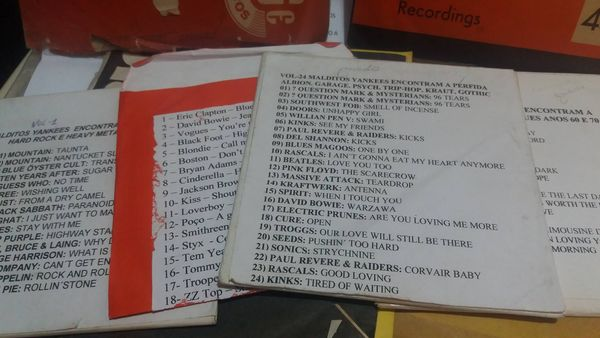 Recordings
4
Vol 1
MALDITOS YANKEES ENCONTRAM
HARD ROCK E HEAVY METAL
MOUNTAIN: TAUNTA
MOUNTAIN: NANTUCKET
BLUE ÖYSTER CULT:
TEN YEARS AFTER: SUGAR
GUESS WHO: NO TIME
FREE: WISHING WELL
FROM A DRY CAMEL
BLACK SABBATH: PARANOID
I JUST WANT TO MA
STAY WITH ME
PURPLE: HIGHWAY STAR
BRUCE & LAING: WHY D
GEORGE HARRISON: WHAT IS
COMPANY: CAN'T GET EN
ZEPPELIN: ROCK AND ROLL
PIE: ROLLIN'STONE
1 – Eric Clapton – Blue
2 – David Bowie – Jea
3 – Vogues – You're
4 – Black Foot – High
5 – Blondie – Call m
6 – Boston – Don't
7 – Bryan Adams
8 – Cinderella – H
9 – Jackson Brow
10 – Kiss – Shou
11 – Loverboy –
12 – Poço – A g
13 – Smithreen
14 – Styx – C
15 – Tem Yea
16 – Tommy
17 – Troope
18- ZZ Top –
VOL-24 MALDITOS YANKEES ENCONTRAM A PERFIDA
ALBION. GARAGE, PSYCH, TRIP-HOP, KRAUT, GOTHIC
01) ? QUESTION MARK & MYSTERIANS: 96 TEARS
02) ? QUESTION MARK & MYSTERIANS: 96 TEARS
03) SOUTHWEST FOB: SMELL OF INCENSE
04) DOORS: UNHAPPY GIRL
05) WILLIAN PEN V: SWAMI
06) KINKS: SEE MY FRIENDS
07) PAUL REVERE & RAIDERS: KICKS
08) DEL SHANNON: KICKS
09) BLUES MAGOOS: ONE BY ONE
10) RASCALS: I AIN'T GONNA EAT MY HEART ANYMORE
11) BEATLES: LOVE YOU TOO
12) PINK FLOYD: THE SCARECROW
13) MASSIVE ATTACK: TEARDROP
14) KRAFTWERK: ANTENNA
15) SPIRIT: WHEN I TOUCH YOU
16) DAVID BOWIE: WARZAWA
17) ELECTRIC PRUNES: ARE YOU LOVING ME MORE
18) CURE: OPEN
19) TROGGS: OUR LOVE WILL STILL BE THERE
20) SEEDS: PUSHIN' TOO HARD
21) SONICS: STRYCHNINE
22) PAUL REVERE & RAIDERS: CORVAIR BABY
23) RASCALS: GOOD LOVING
24) KINKS: TIRED OF WAITING
ENCONTRAM A
UES ANOS 60 E 70
THE LAST DA
LIMOUSINE D
MORNING